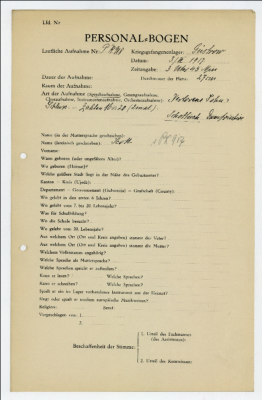 Lfd. Nr.
PERSONAL-BOGEN
Lautliche Aufnahme Nr. P 891 Kriegsgefangenenlager:
Datum: 3/III 1917
Zeitangabe: 3 Uhr 43 Min
Dauer der Aufnahme: Durchmesser der Platte: 27 cm
Raum der Aufnahme:
Art der Aufnahme (Sprechaufnahme, Gesangsaufnahme,
Choraufnahme, Instrumentenaufnahme, Orchesteraufnahme): Verlorener Sohn
Zahlen 1 bis 20 (einmal)
Name (in der Muttersprache geschrieben):
Name (lateinisch geschrieben):
Vorname:
Wann geboren (oder ungefähres Alter)?
Wo geboren (Heimat)?
Welche größere Stadt liegt in der Nähe des Geburtsortes?
Kanton — Kreis (Ujedz):
Department — Gouvernement (Gubernija) — Grafschaft (County):
Wo gelebt in den ersten 6 Jahren?
Wo gelebt vom 7. bis 20. Lebensjahr?
Was für Schulbildung?
Wo die Schule besucht?
Wo gelebt vom 20. Lebensjahr?
Aus welchem Ort (Ort und Kreis angeben) stammt der Vater?
Aus welchem Ort (Ort und Kreis angeben) stammt die Mutter?
Welchem Volksstamm angehörig?
Welche Sprache als Muttersprache?
Welche Sprachen spricht er außerdem?
Kann er lesen? Welche Sprachen?
Kann er schreiben? Welche Sprachen?
Spielt er ein im Lager vorhandenes Instrument aus der Heimat?
Singt oder spielt er modern europäische Musikweisen?
Religion: Beruf:
Vorgeschlagen von: 1.
2.
Beschaffenheit der Stimme:
1. Urteil des Fachmannes
(des Assistenten):
2. Urteil des Kommissars: